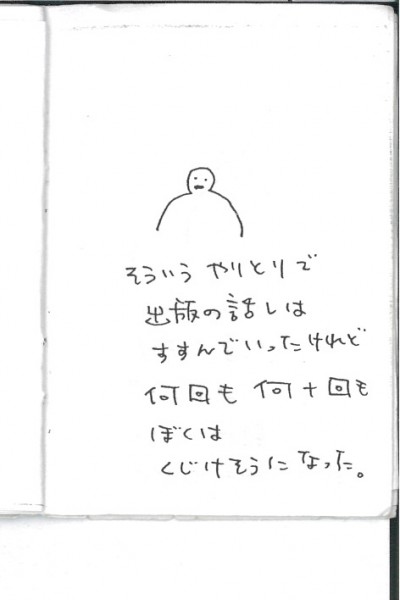 そういう やりとりで
出版の話しは
すすんでいったけれど
何回も 何十回も
ぼくは
くじけそうに なった。